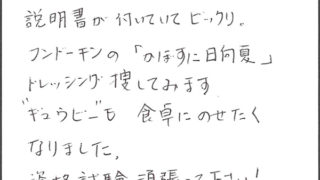 説明書が付いていてビックリ。
フンドーキンの「かぼすに日向夏」
ドレッシング捜してみます
"ギュウピー"も 食卓にのせたく
なりました。
資格試験 頑張って下さい!